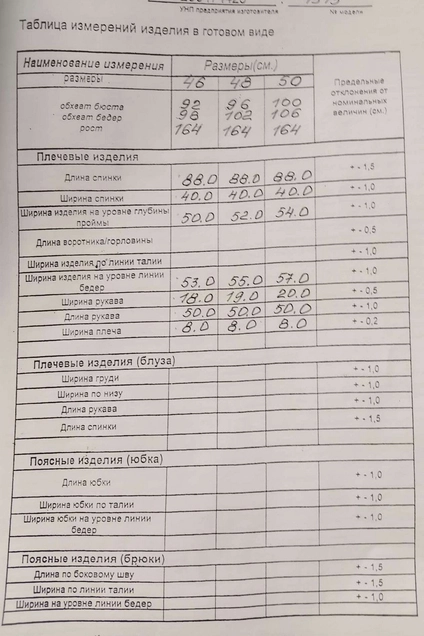 УНП предприятия изготовителя № модели
Таблица измерений изделия в готовом виде
Наименование измерения Размеры(см.) Предельные отклонения от номинальных величин (см.)
размеры 46 48 50
обхват бюста 92 96 100
обхват бедер 98 102 106
рост 164 164 164
Плечевые изделия
Длина спинки 88.0 88.0 88.0 + - 1,5
Ширина спинки 40.0 40.0 40.0 + - 1,0
Ширина изделия на уровне глубины проймы 50.0 52.0 54.0 + - 1,0
Длина воротника/горловины + - 0,5
Ширина изделия до линии талии + - 1,0
Ширина изделия на уровне линии бедер 53.0 55.0 57.0 + - 1,0
Ширина рукава 18.0 19.0 20.0 + - 0,5
Длина рукава 50.0 50.0 50.0 + - 1,0
Ширина плеча 8.0 8.0 8.0 + - 0,2
Плечевые изделия (блуза)
Ширина груди + - 1,0
Ширина по низу + - 1,0
Длина рукава + - 1,0
Длина спинки + - 1,5
Поясные изделия (юбка)
Длина юбки + - 1,0
Ширина юбки по талии + - 1,0
Ширина юбки на уровне линии бедер + - 1,0
Поясные изделия (брюки)
Длина по боковому шву + - 1,5
Ширина по линии талии + - 1,5
Ширина на уровне линии бедер + - 1,0